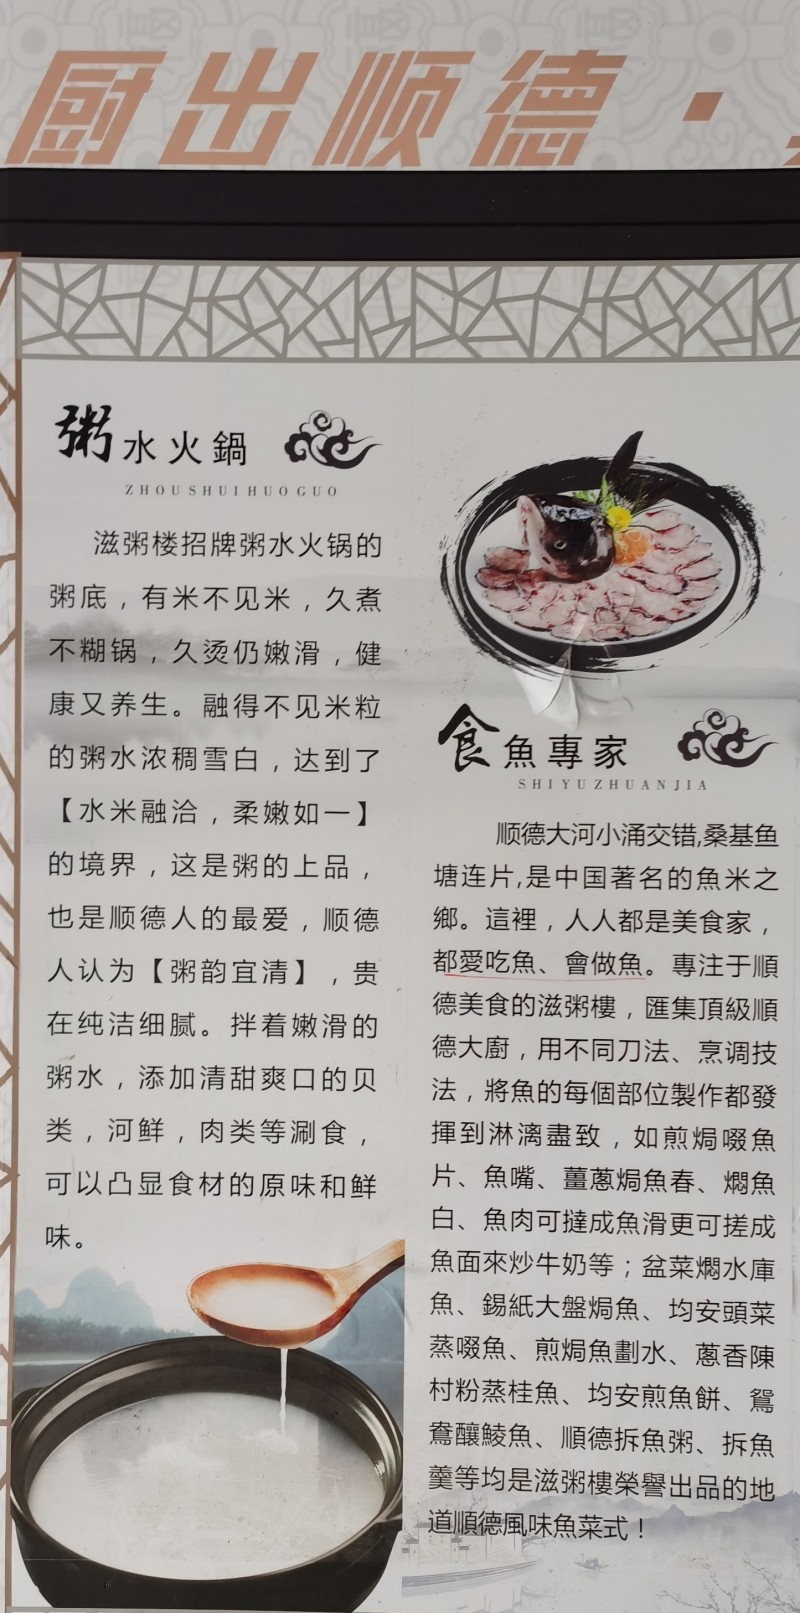 厨出顺德·
粥水火鍋
ZHOUSHUIHUOGUO
滋粥楼招牌粥水火锅的
粥底，有米不见米，久煮
不糊锅，久烫仍嫩滑，健
康又养生。融得不见米粒
的粥水浓稠雪白，达到了
【水米融洽，柔嫩如一】
的境界，这是粥的上品，
也是顺德人的最爱，顺德
人认为【粥韵宜清】，贵
在纯洁细腻。拌着嫩滑的
粥水，添加清甜爽口的贝
类，河鲜，肉类等涮食，
可以凸显食材的原味和鲜
味。
食魚專家
SHIYUZHUANJIA
顺德大河小涌交错,桑基鱼
塘连片,是中国著名的魚米之
鄉。這裡，人人都是美食家，
都愛吃魚、會做魚。專注于順
德美食的滋粥樓，匯集頂級順
德大廚，用不同刀法、烹调技
法，將魚的每個部位製作都發
揮到淋漓盡致，如煎焗啜魚
片、魚嘴、薑蔥焗魚春、燜魚
白、魚肉可撻成魚滑更可搓成
魚面來炒牛奶等；盆菜燜水庫
魚、錫紙大盤焗魚、均安頭菜
蒸啜魚、煎焗魚劃水、蔥香陳
村粉蒸桂魚、均安煎魚餅、鴛
鴦釀鯪魚、順德拆魚粥、拆魚
羹等均是滋粥樓榮譽出品的地
道順德風味魚菜式！